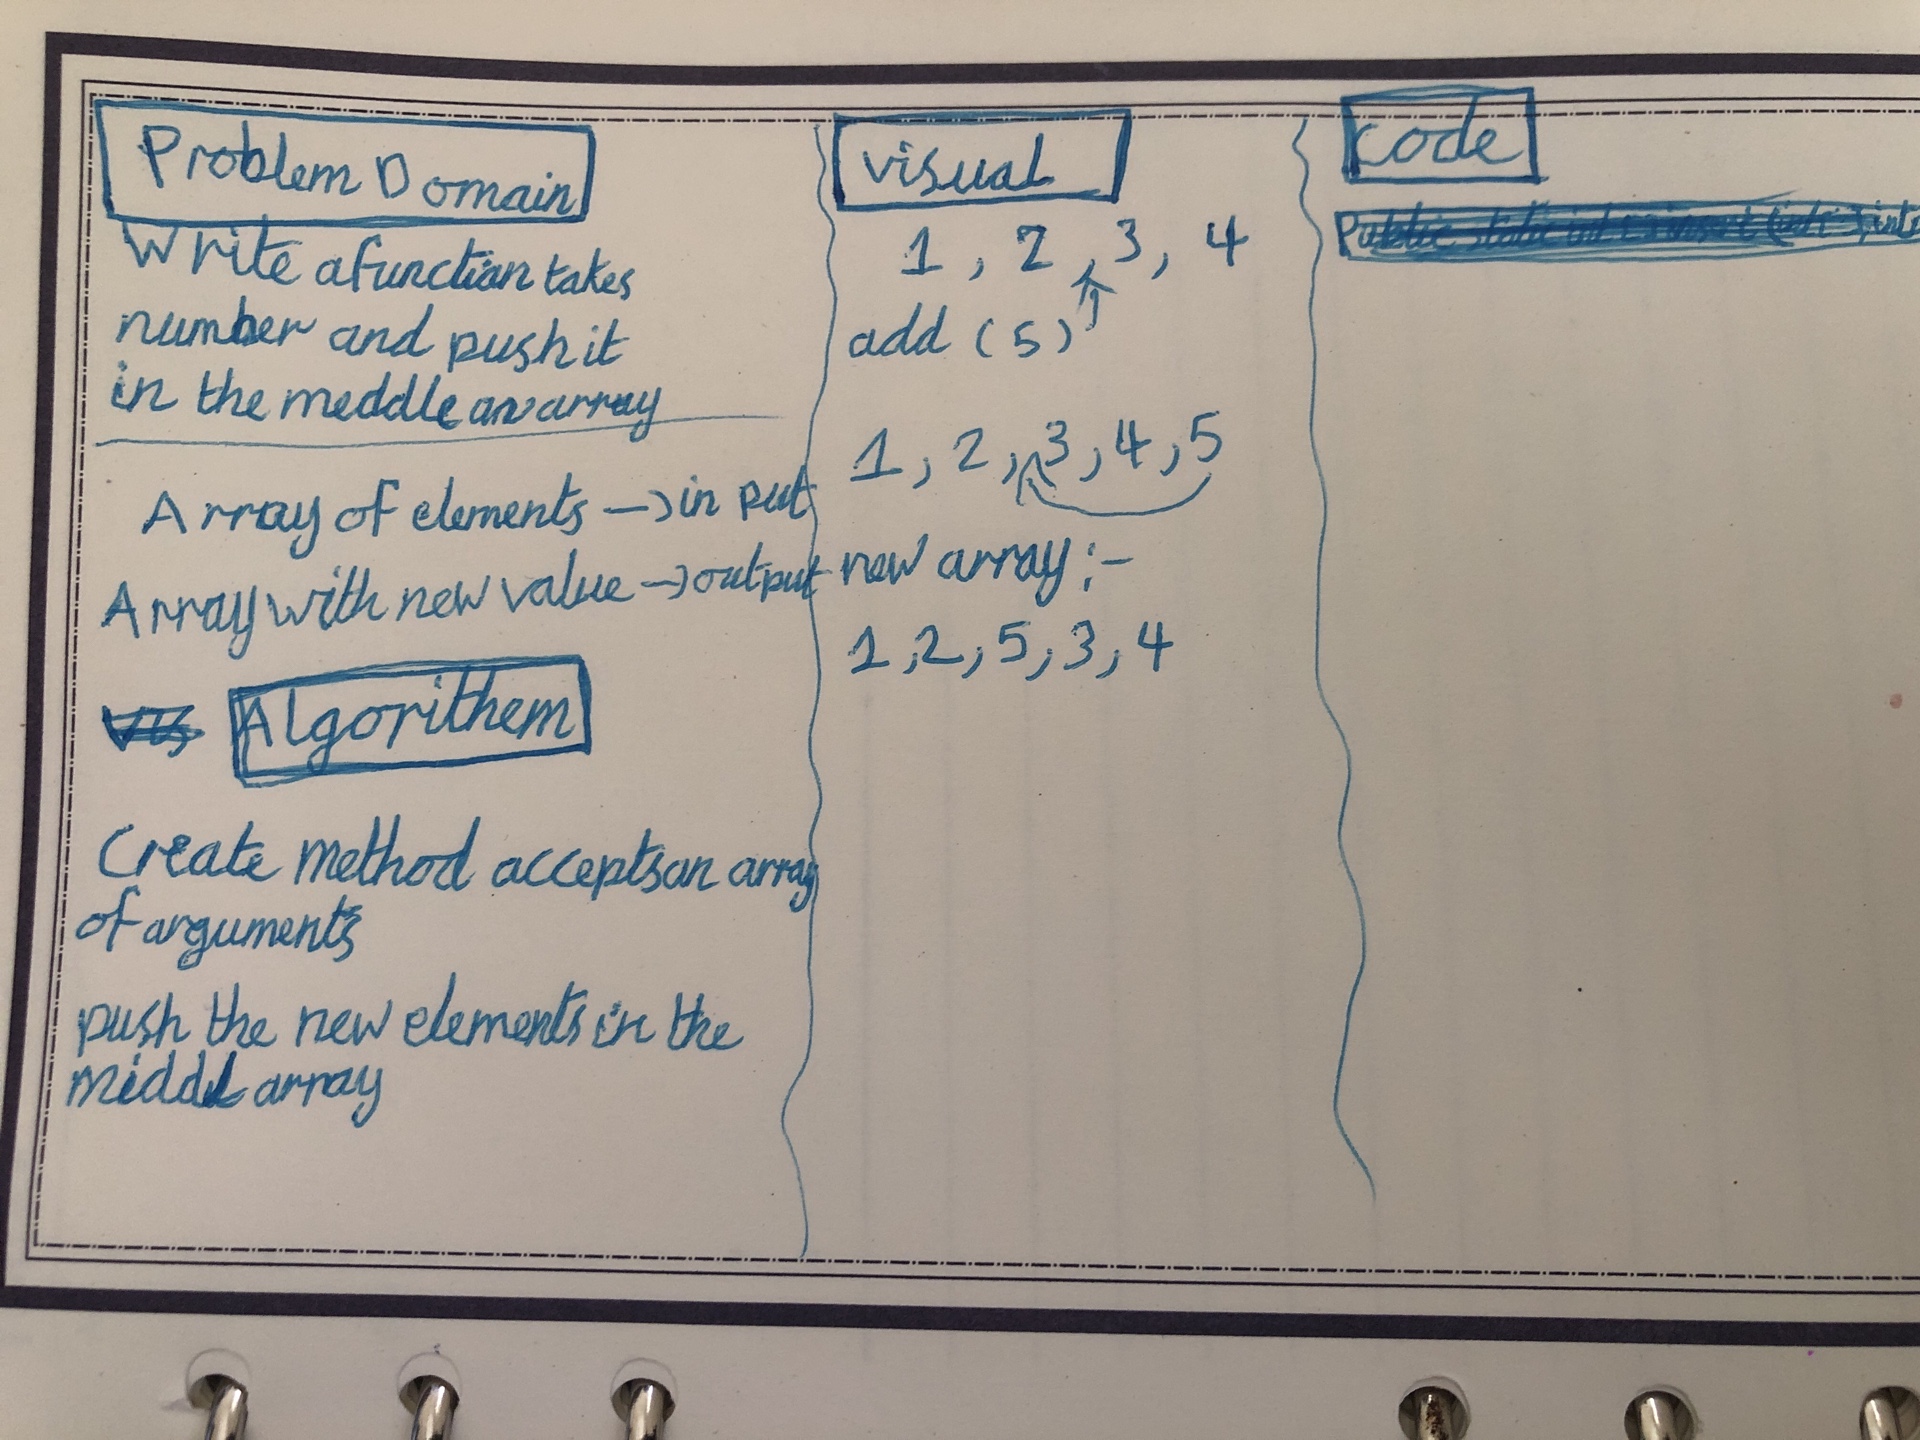 Problem Domain
Write a function takes
number and push it
in the meddle an array
Array of elements → in put
Array with new value → output
Algorithem
Create method accepts an array
of arguments
push the new elements in the
middle array
visual
1 , 2 , 3 , 4
add ( 5 )
1 , 2 , 3 , 4 , 5
new array :-
1 , 2 , 5 , 3 , 4
code
Public static int